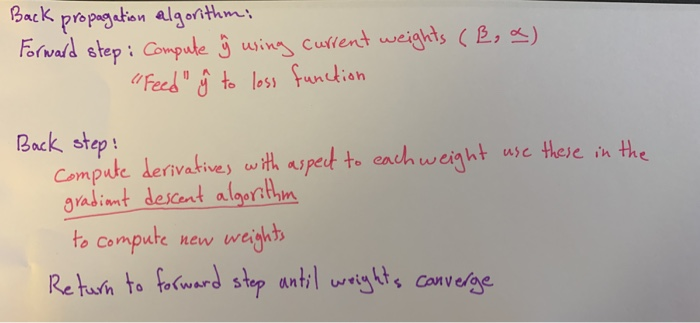 Back propagation algorithm:
Forward step: Compute ŷ using current weights (β, α)
"Feed" ŷ to loss function
Back step:
Compute derivatives with aspect to each weight use these in the
gradiant descent algorithm
to compute new weights
Return to forward step until weights converge